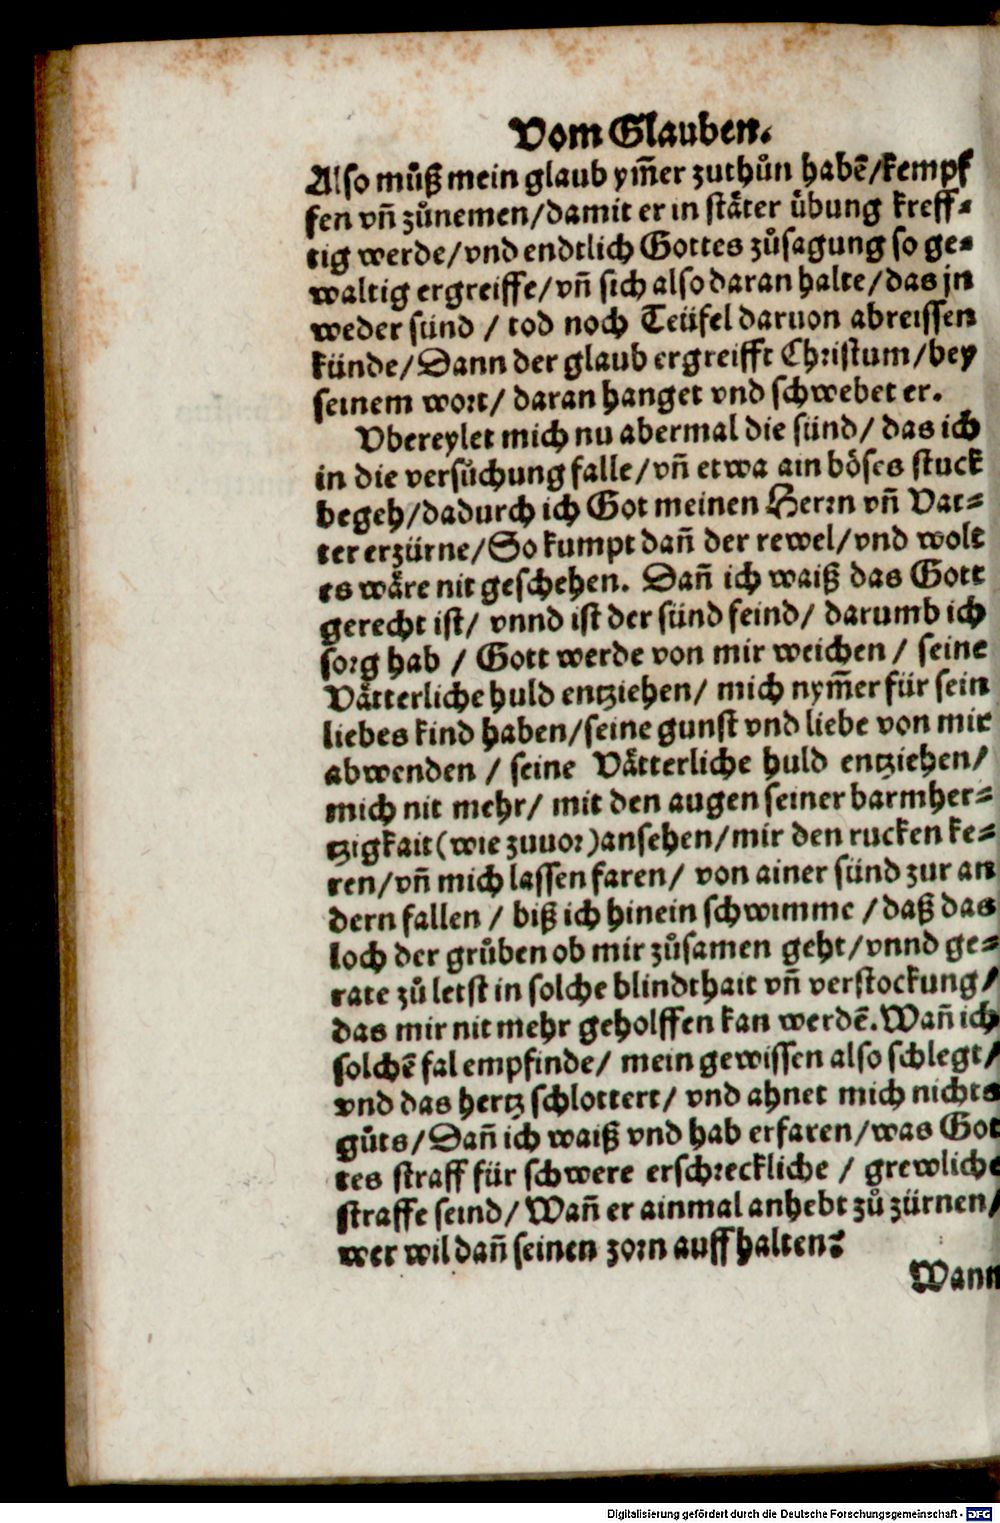 Vom Glauben.
Also můß mein glaub ym̃er zuthůn habẽ/kempf
fen vñ zůnemen/damit er in stäter übung kreff⸗
tig werde/vnd endtlich Gottes zůsagung so ge⸗
waltig ergreiffe/vñ sich also daran halte/das jn
weder sünd / tod noch Teüfel daruon abreissen
künde/Dann der glaub ergreifft Christum/bey
seinem wort/ daran hanget vnd schwebet er.
Vbereylet mich nu abermal die sünd/ das ich
in die versůchung falle/vñ etwa ain böses stuck
begeh/dadurch ich Got meinen Herrn vñ Vat⸗
ter erzürne/So kumpt dañ der rewel/vnd wolt
es wäre nit geschehen. Dañ ich waiß das Gott
gerecht ist/ vnnd ist der sünd feind/ darumb ich
sorg hab / Gott werde von mir weichen / seine
Vätterliche huld entziehen/ mich nym̃er für sein
liebes kind haben/seine gunst vnd liebe von mir
abwenden / seine Vätterliche huld entziehen/
mich nit mehr/ mit den augen seiner barmher⸗
tzigkait(wie zuuor)ansehen/mir den rucken ke⸗
ren/vñ mich lassen faren/ von ainer sünd zur an
dern fallen / biß ich hinein schwimme /daß das
loch der grůben ob mir zůsamen geht/vnnd ge⸗
rate zů letst in solche blindthait vñ verstockung/
das mir nit mehr geholffen kan werdẽ.Wañ ich
solchẽ fal empfinde/ mein gewissen also schlegt/
vnd das hertz schlottert/ vnd ahnet mich nichts
gůts/Dañ ich waiß vnd hab erfaren/was Got
tes straff für schwere erschreckliche / grewliche
straffe seind/Wañ er ainmal anhebt zů zürnen/
wer wil dañ seinen zorn auffhalten?
Wann
Digitalisierung gefördert durch die Deutsche Forschungsgemeinschaft - DFG